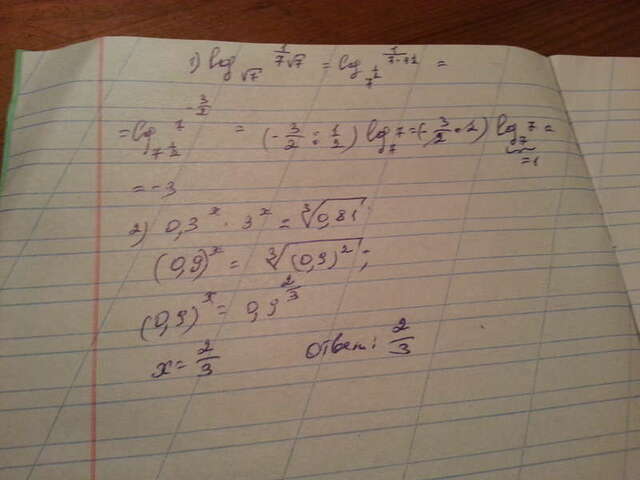 1) log_{√7} 1/(7√7) = log_{7^{1/2}} 1/(7·7^{1/2}) =
= log_{7^{1/2}} 7^{-3/2} = (-3/2 : 1/2) log_7 7 = (-3/2 · 2) log_7 7 =
=1
= -3
2) 0,3^x · 3^x = ∛0,81;
(0,9)^x = ∛(0,9)^2;
(0,9)^x = 0,9^{2/3}
x = 2/3 Ответ: 2/3